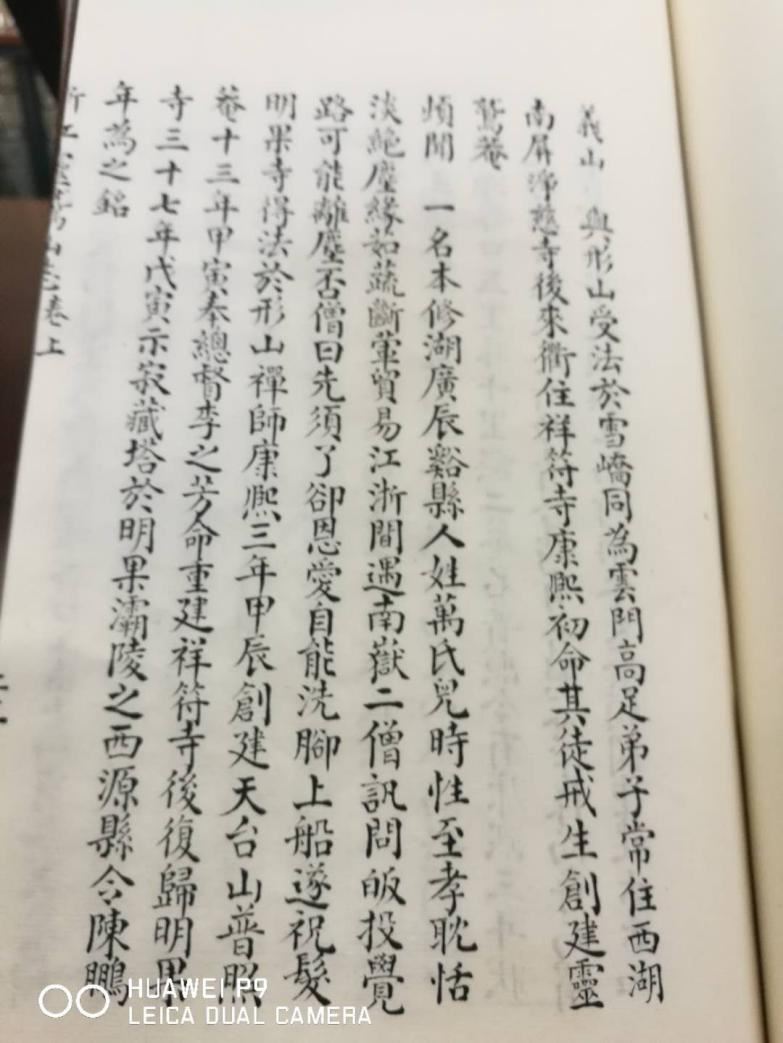 義山 與形山受法於雪嶠同為雲門高足弟子常住西湖
南屏淨慈寺後來衢住祥符寺康熙初命其徒戒生創建靈
鷲菴
頻聞 一名本修湖廣辰谿縣人姓萬氏兒時性至孝耽恬
淡絕塵緣如蔬斷葷貿易江浙間遇南嶽二僧訊問皈投覺
路可能離塵否僧曰先須了卻恩愛自能洗腳上船遂祝髮
明果寺得法於形山禪師康熙三年甲辰創建天台山普照
菴十三年甲寅奉總督李之芳命重建祥符寺後復歸明果
寺三十七年戊寅示寂藏塔於明果灞陵之西源縣令陳鵬
年為之銘
山志卷上
HUAWEI P9
LEICA DUAL CAMERA